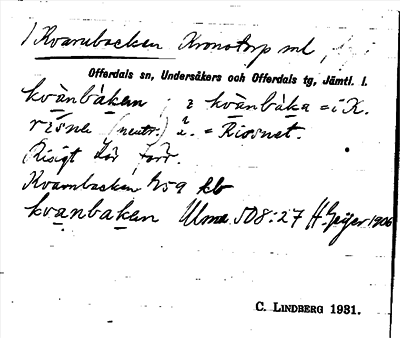 Kvarnbacken Kronotorp ml
Offerdals sn, Undersåkers och Offerdals tg, Jämtl. l.
kvànbàken ; i kvànbàka = i K.
risne (neutr.) = Riosnet.
Risigt där förr.
Kvarnbacken 1759 kb
kvanbaken Ulma 508:27 H. Geijer 1906
C. LINDBERG 1931.